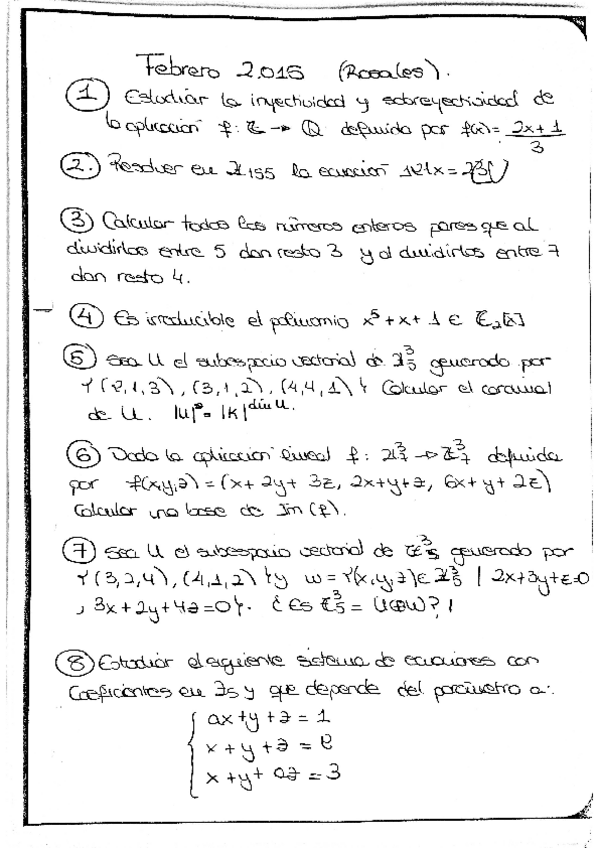 Febrero 2.015 (Rosales).
① Estudiar la inyectividad y sobreyectividad de
la aplicación f: ℤ → ℚ definida por f(x) = (2x+1)/3
②. Resolver en ℤ155 la ecuación 121x =
③ Calcular todos los números enteros pares que al
dividirlos entre 5 dan resto 3 y al dividirlos entre 7
dan resto 4.
④ Es irreducible el polinomio x⁵ + x + 1 ∈ ℤ₂[x]
⑤ Sea U el subespacio vectorial de ℤ₅³ generado por
{(2,1,3), (3,1,2), (4,4,1)} Calcular el cardinal
de U. |U| = |K|^dim U.
⑥ Dada la aplicación lineal f: ℤ₇³ → ℤ₇³ definida
por f(x,y,z) = (x + 2y + 3z, 2x+y+z, 6x + y + 2z)
Calcular una base de Im(f).
⑦ Sea U el subespacio vectorial de ℤ₅³ generado por
{(3,2,4), (4,1,2)} y W = {(x,y,z) ∈ ℤ₅³ | 2x+3y+z=0
, 3x + 2y + 4z = 0}. ¿Es ℤ₅³ = U⊕W?
⑧ Estudiar el siguiente sistema de ecuaciones con
Coeficientes en ℤ5 y que depende del parámetro a:
ax + y + z = 1
x + y + z = 2
x + y + az = 3